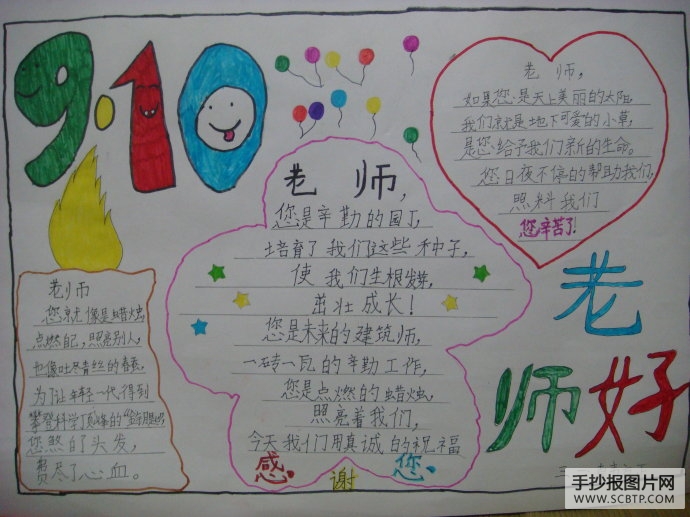 9.10
老师,
如果您是天上美丽的太阳,
我们就是地下可爱的小草,
是您给予我们新的生命。
您日夜不停的帮助我们,
照料我们
您辛苦了!
老师,
您是辛勤的园丁,
培育了我们这些种子,
使我们生根发芽,
茁壮成长!
您是未来的建筑师,
一砖一瓦的辛勤工作,
您是点燃的蜡烛,
照亮着我们,
今天我们用真诚的祝福
感谢您.
老师
您就像是蜡烛,
点燃自己,照亮别人,
也像吐尽青丝的春蚕,
为了让年轻一代得到
攀登科学顶峰的
您煞的头发,
费尽了心血。
老师好
手抄报图片网
WWW.SCBTP.COM